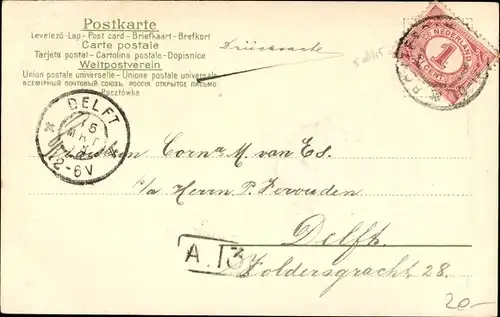 Postkarte
Levelező-Lap - Post card - Briefkaart - Brefkort
Carte postale
Tarjeta postal - Cartolina postale - Dopisnice
Weltpostverein
Union postale universelle - Unione postale universale
ВСЕМІРНЫЙ ПОЧТОВЫЙ СОЮЗЪ. РОССІЯ. ОТКРЫТОЕ ПИСЬМО.
Pocztówka
Drucksache
NEDERLAND
1
CENT
DELFT
15
12-6V
Corna M. van Es.
p/a Heeren J. Vervouden
Delft.
Voldersgracht 28.
A. 13
20-